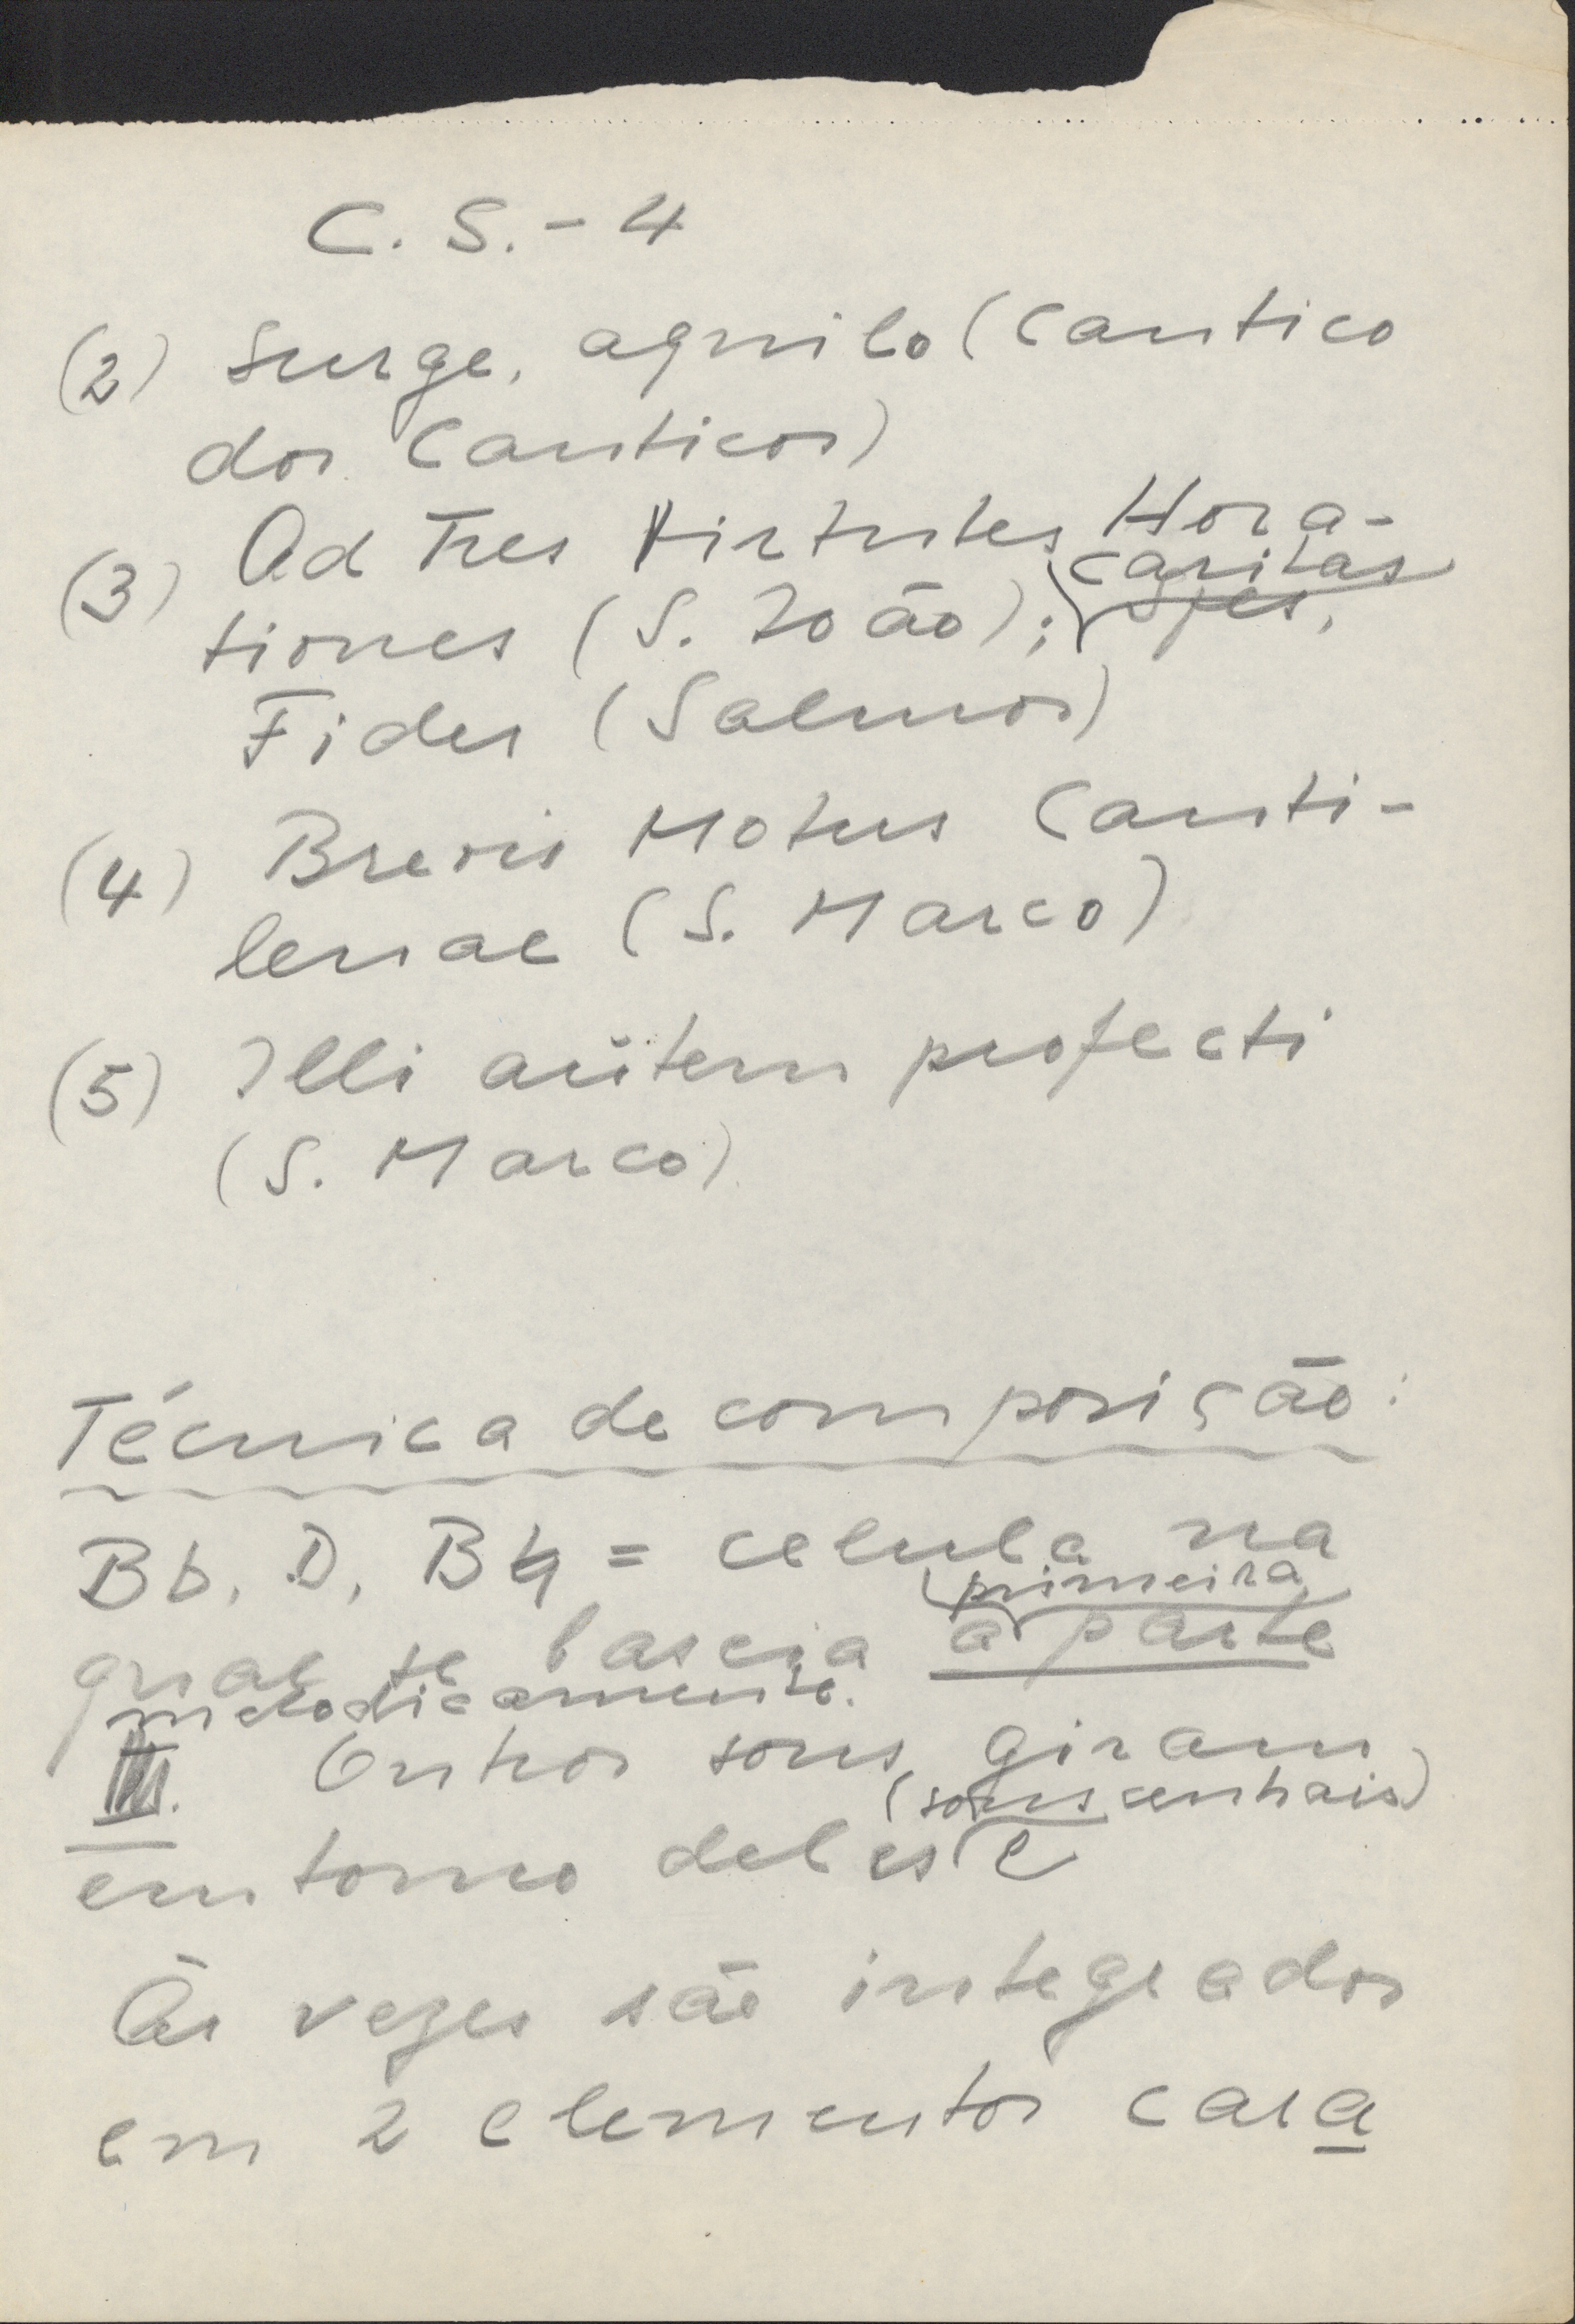 C. S. - 4
(2) Surge, aquilo (Cantico
dos Canticos)
(3) Ad Tres Virtutes Hora-
caritas
tiones (S. João); Spes,
Fides (Salmos)
(4) Brevis Motus Canti-
lenae (S. Marco)
(5) Illi autem profecti
(S. Marco)
Técnica de composição:
Bb, D, B♮ = celula na
primeira
qual se baseia a parte
melodicamente.
Outros sons giram
(sons centrais)
em torno deles e
Às vezes são integrados
em 2 elementos cara